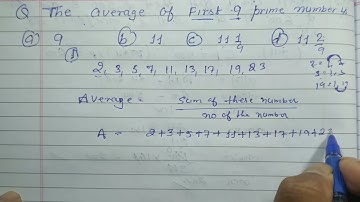 Q The average of First 9 prime number is
(a) 9 (b) 11 (c) 11 1/9 (d) 11 2/9
2, 3, 5, 7, 11, 13, 17, 19, 23
Average = Sum of these number
no of the number
A = 2+3+5+7+11+13+17+19+23